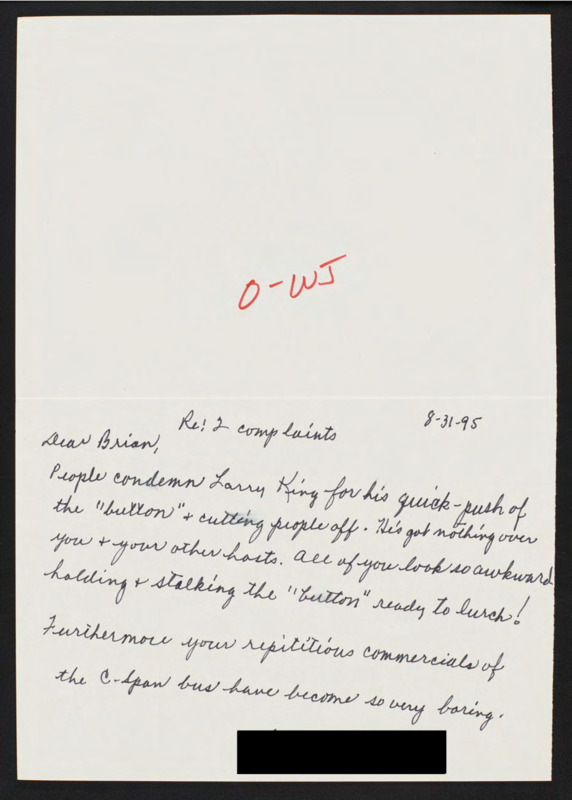 O-WJ
Re: 2 complaints
8-31-95
Dear Brian,
People condemn Larry King for his quick-push of
the "button" + cutting people off. He's got nothing over
you + your other hosts. All of you look so awkward
holding + stalking the "button" ready to lurch!
Furthermore your repititious commercials of
the C-Span bus have become so very boring.